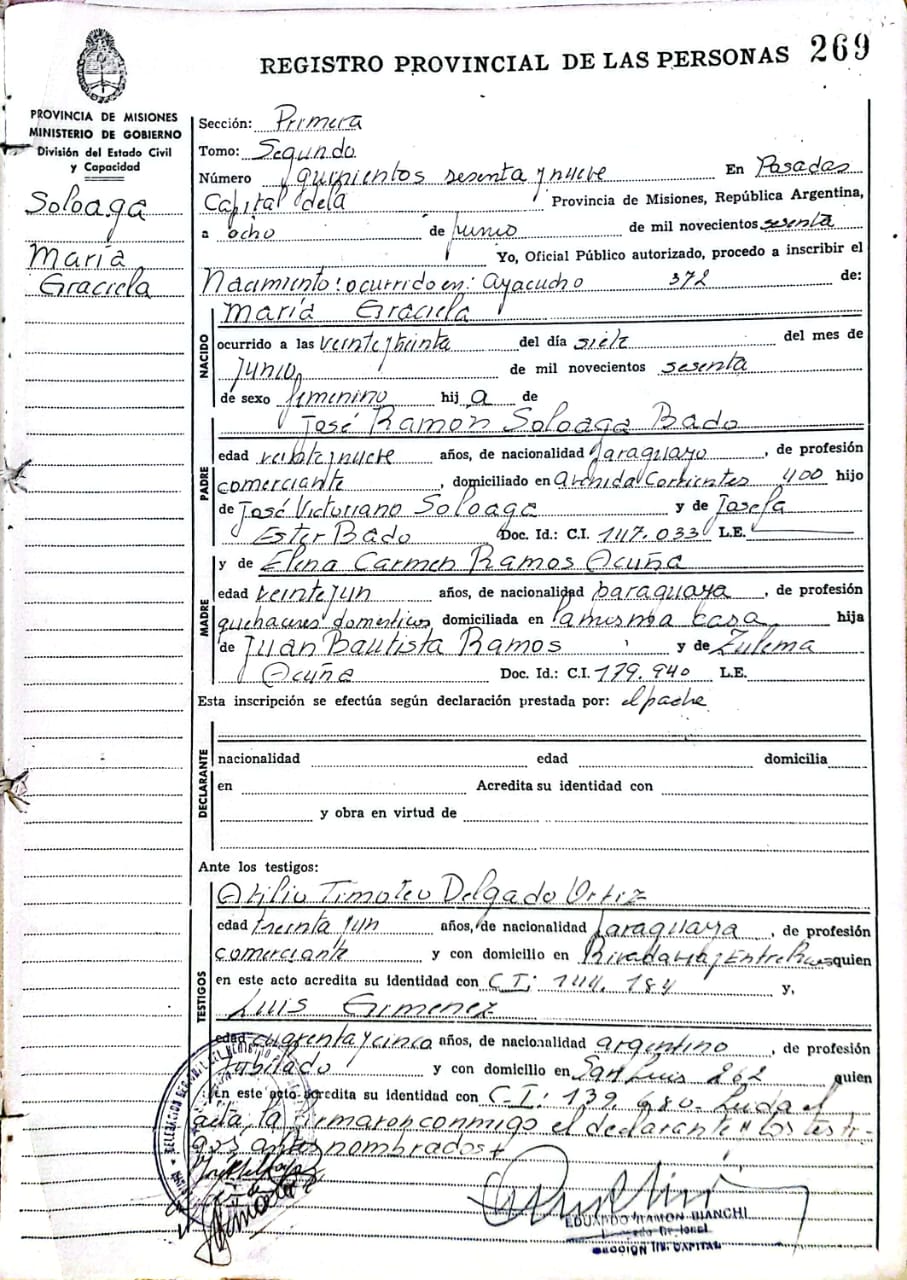 REGISTRO PROVINCIAL DE LAS PERSONAS 269
PROVINCIA DE MISIONES
MINISTERIO DE GOBIERNO
División del Estado Civil
y Capacidad
Soloaga
María
Graciela
Sección: Primera
Tomo: Segundo
Número quinientos sesenta y nueve En Posadas
Capital de la Provincia de Misiones, República Argentina,
a ocho de junio de mil novecientos sesenta
Yo, Oficial Público autorizado, procedo a inscribir el
Nacimiento: ocurrido en: Ayacucho 372 de:
María Graciela
NACIDO
ocurrido a las veinte y treinta del día siete del mes de
Junio de mil novecientos sesenta
de sexo femenino hij a de
José Ramón Soloaga Bado
PADRE
edad veinte y nueve años, de nacionalidad paraguayo, de profesión
comerciante, domiciliado en Avenida Corrientes 400 hijo
de José Victoriano Soloaga y de Josefa
Ester Bado Doc. Id.: C.I. 147.033 L.E.
y de Elena Carmen Ramos Acuña
MADRE
edad veinte y un años, de nacionalidad paraguaya, de profesión
quehaceres domésticos domiciliada en la misma casa hija
de Juan Bautista Ramos y de Zulema
Acuña Doc. Id.: C.I. 179.940 L.E.
Esta inscripción se efectúa según declaración prestada por: el padre
DECLARANTE
nacionalidad edad domicilia
en Acredita su identidad con
y obra en virtud de
Ante los testigos:
Atilio Timoteo Delgado Ortiz
TESTIGOS
edad treinta y un años, de nacionalidad paraguaya, de profesión
comerciante y con domicilio en Rivadavia y Entre Ríos quien
en este acto acredita su identidad con C.I: 144.184 y,
Luis Gimenez
edad cuarenta y cinco años, de nacionalidad argentino, de profesión
jubilado y con domicilio en San Luis 262 quien
en este acto acredita su identidad con C.I: 139.680. Leida el
acta, la firmaron conmigo el declarante y los testi-
gos antes nombrados
EDUARDO RAMON BIANCHI
SECCION 1ra. CAPITAL